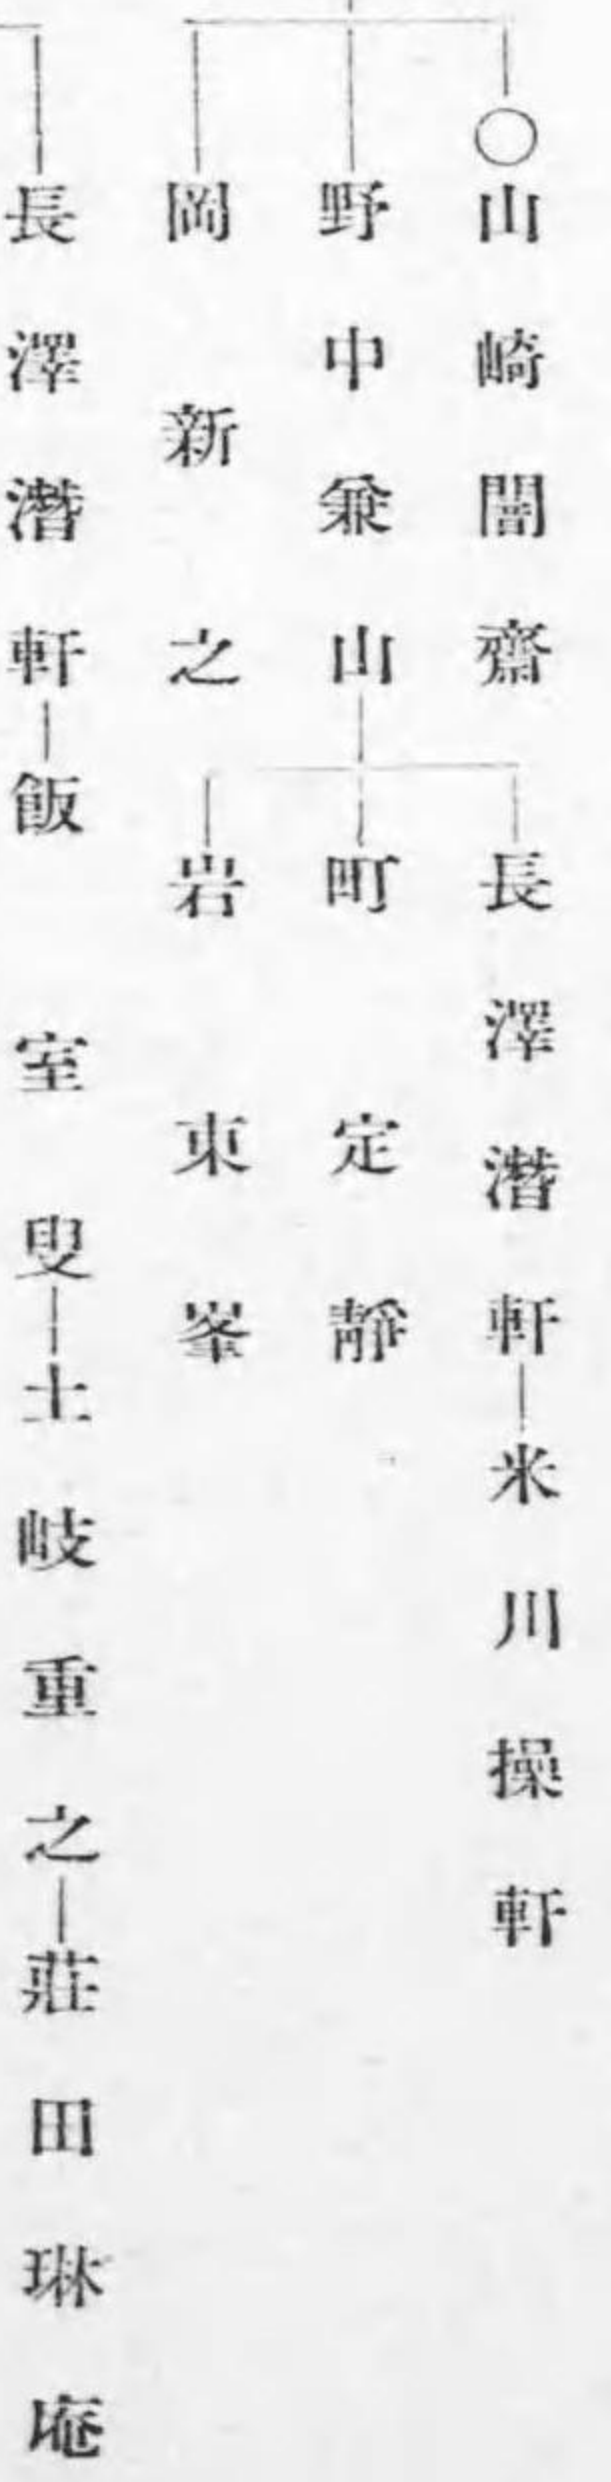 ○山崎闇齋
野中兼山
長澤潛軒―米川操軒
町定靜
岩東峯
岡新之
長澤潛軒―飯室叟―土岐重之―莊田琳庵